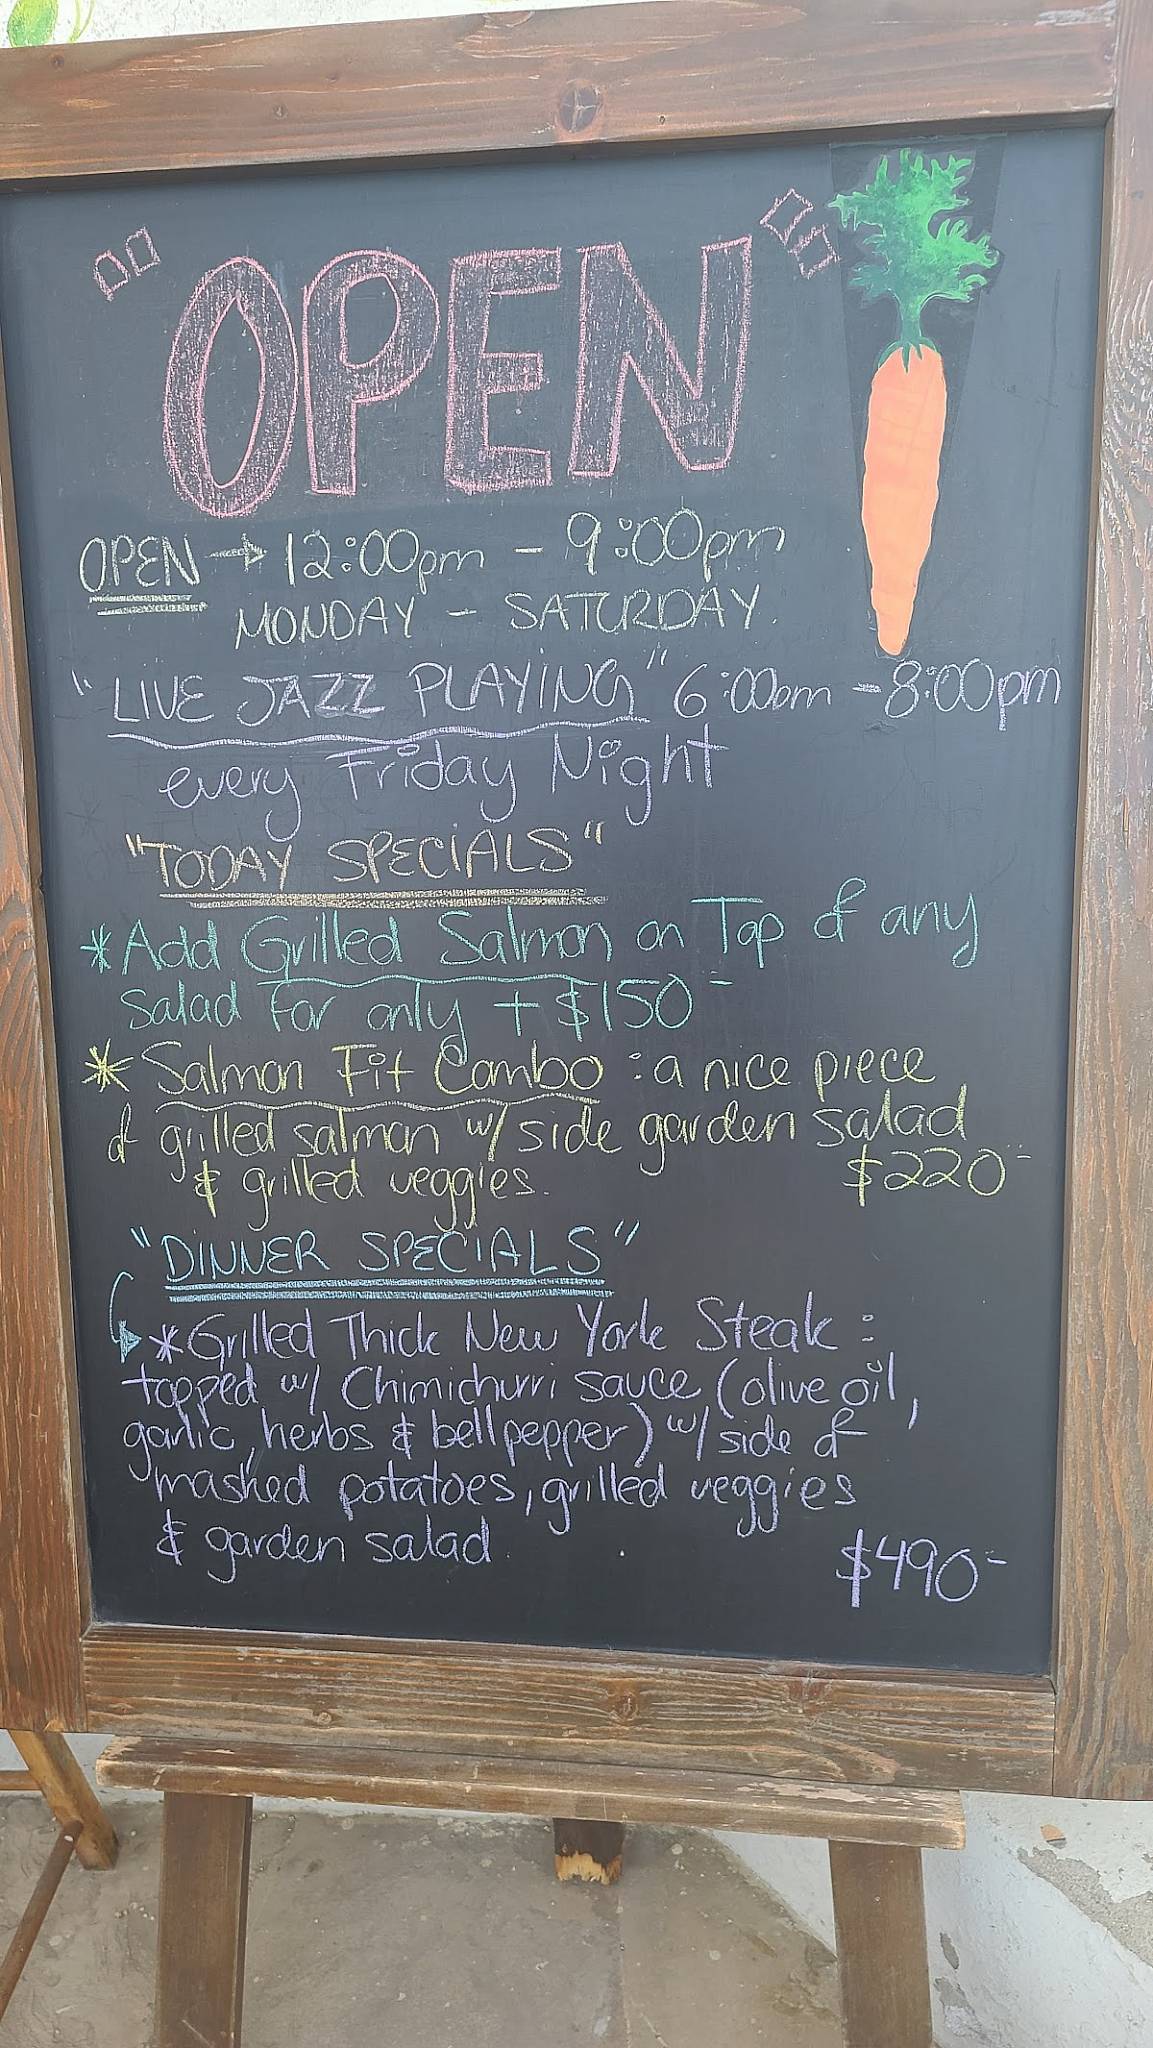 "OPEN"
OPEN → 12:00pm - 9:00pm
MONDAY - SATURDAY.
"LIVE JAZZ PLAYING" 6:00am - 8:00pm
every Friday Night
"TODAY SPECIALS"
*Add Grilled Salmon on Top of any
salad For only + $150-
* Salmon Fit Combo : a nice piece
of grilled salmon w/ side garden salad
& grilled veggies. $220-
"DINNER SPECIALS"
*Grilled Thick New York Steak :
topped w/ Chimichurri sauce (olive oil,
garlic, herbs & bell pepper) w/ side of
mashed potatoes, grilled veggies
& garden salad. $490-